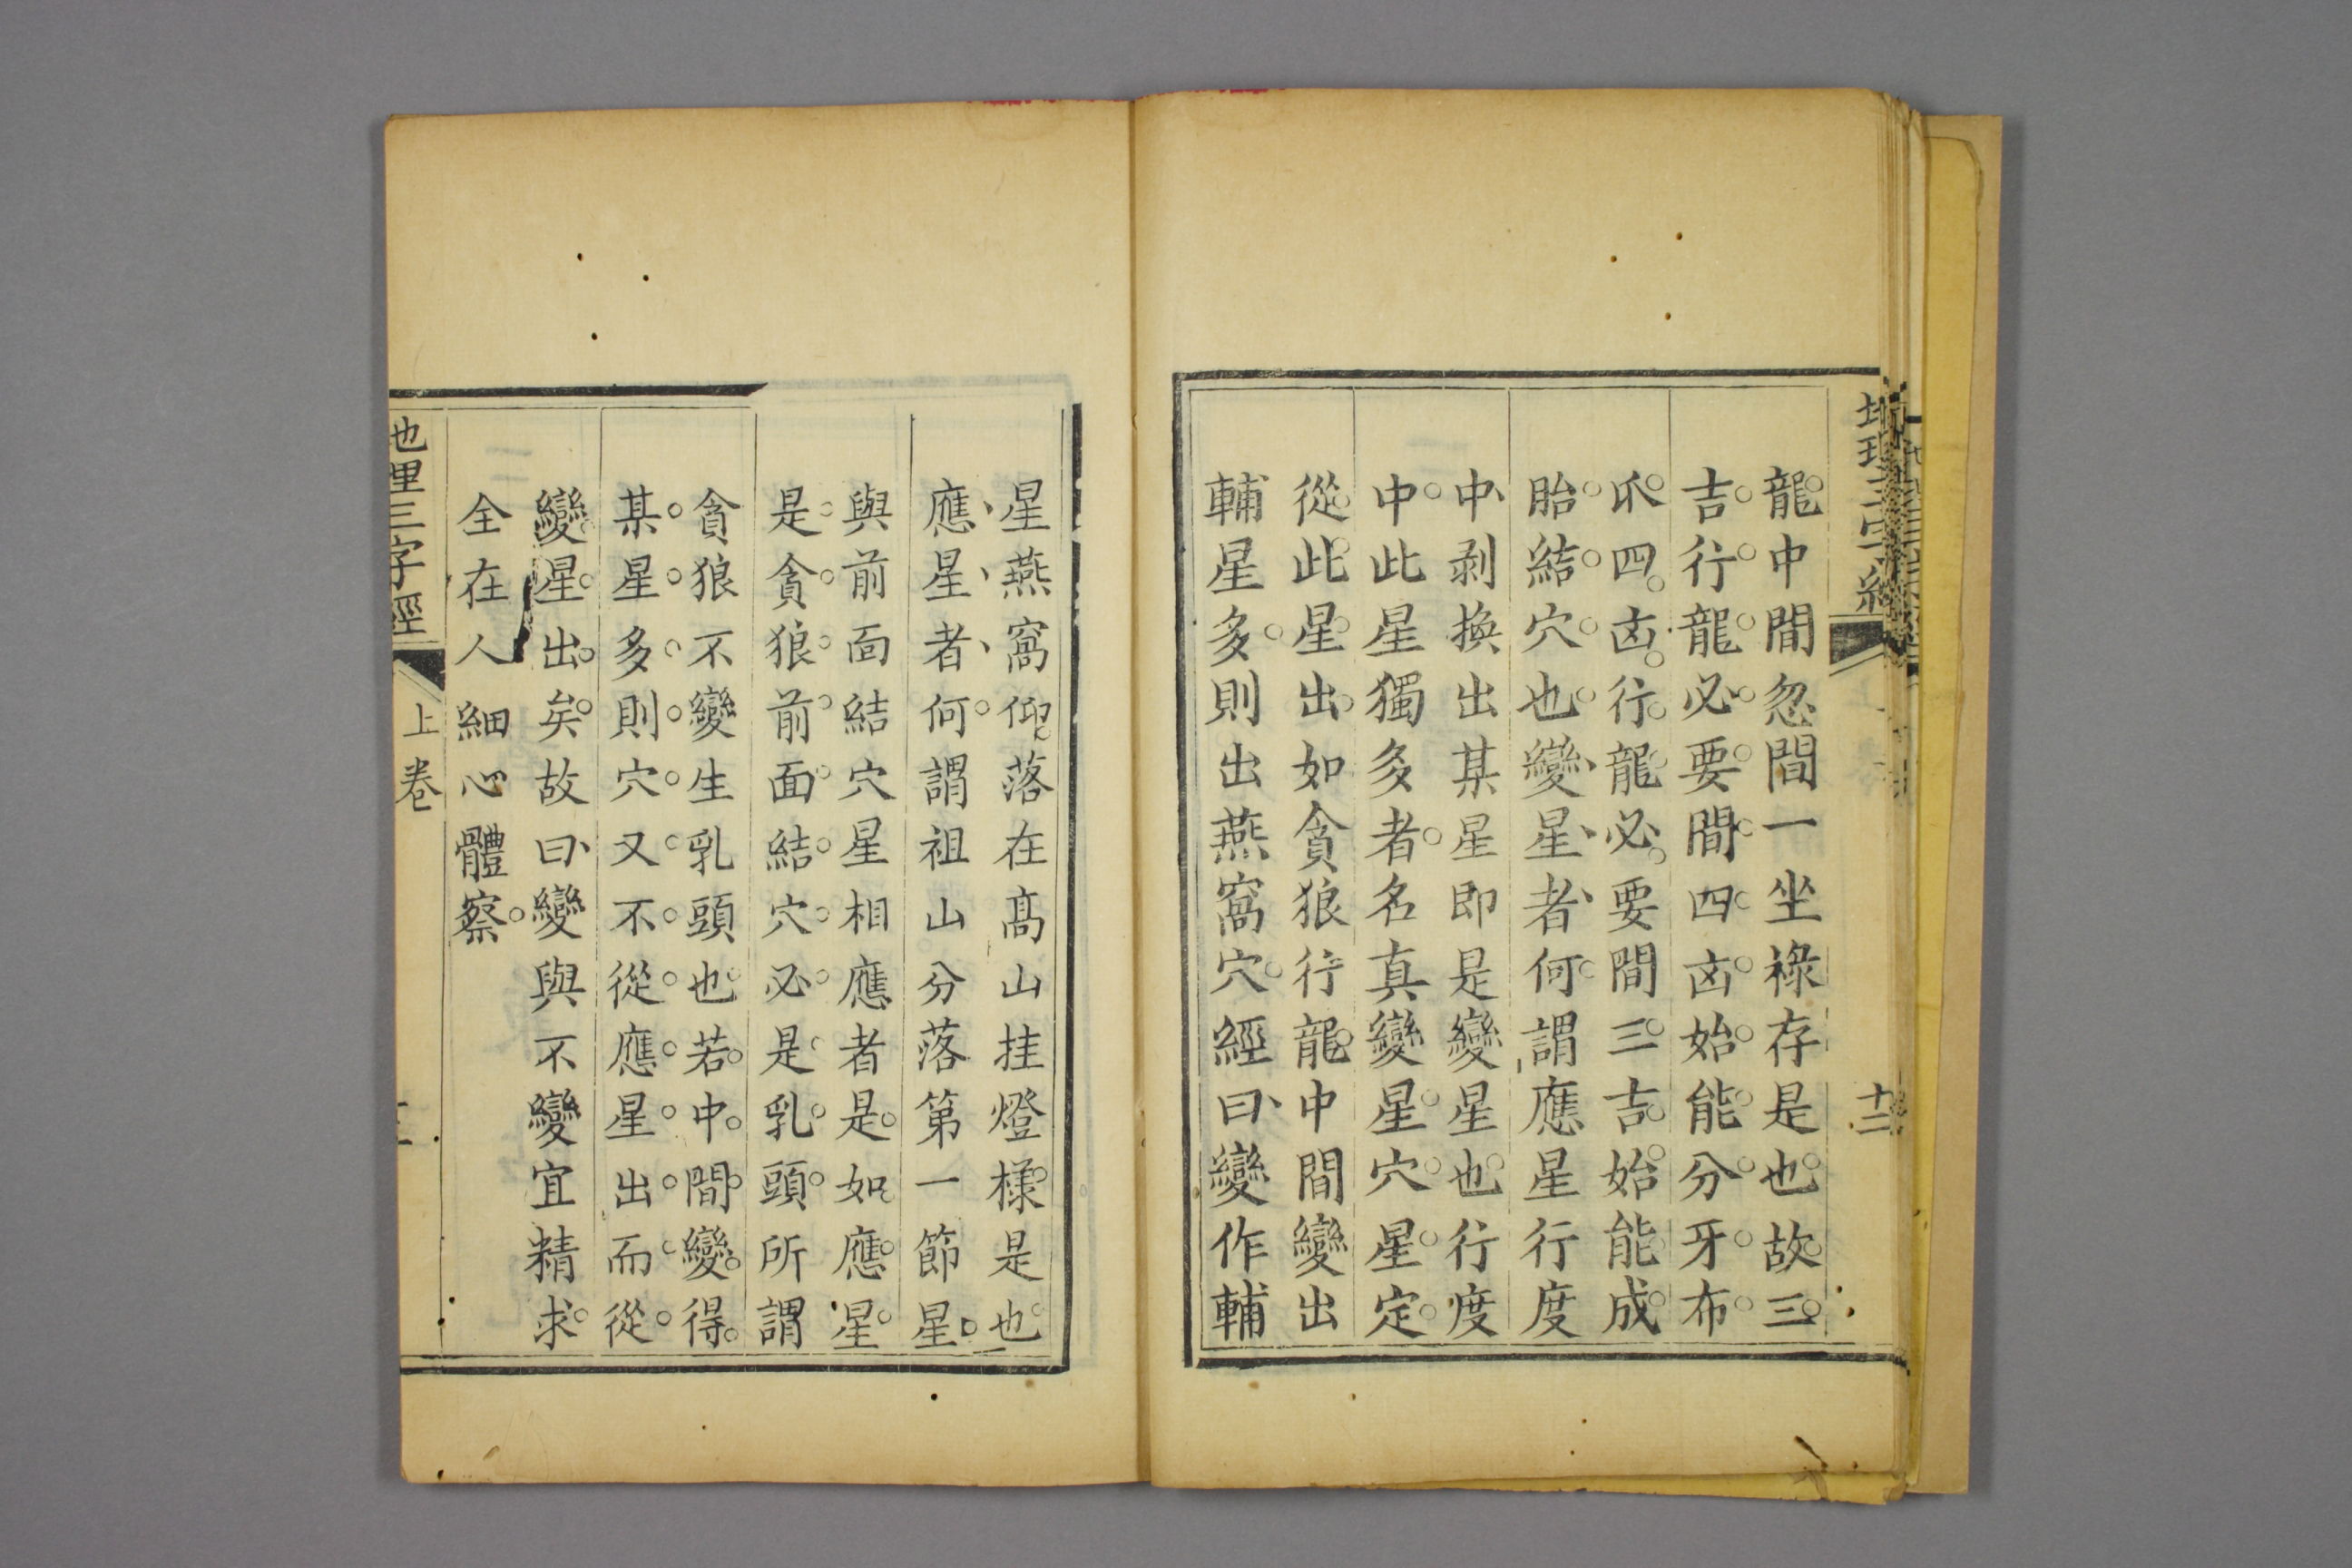 龍中間忽間一坐祿存是也故三
吉行龍必要間四凶始能分牙布
爪四凶行龍必要間三吉始能成
胎結穴也變星者何謂應星行度
中剥換出某星即是變星也行度
中此星獨多者名真變星穴星定
從此星出如貪狼行龍中間變出
輔星多則出燕窩穴經曰變作輔
星燕窩仰落在高山挂燈樣是也
應星者何謂祖山分落第一節星
與前面結穴星相應者是如應星
是貪狼前面結穴必是乳頭所謂
貪狼不變生乳頭也若中間變得
某星多則穴又不從應星出而從
變星出矣故曰變與不變宜精求
全在人細心體察
地理三字經
上卷
十二